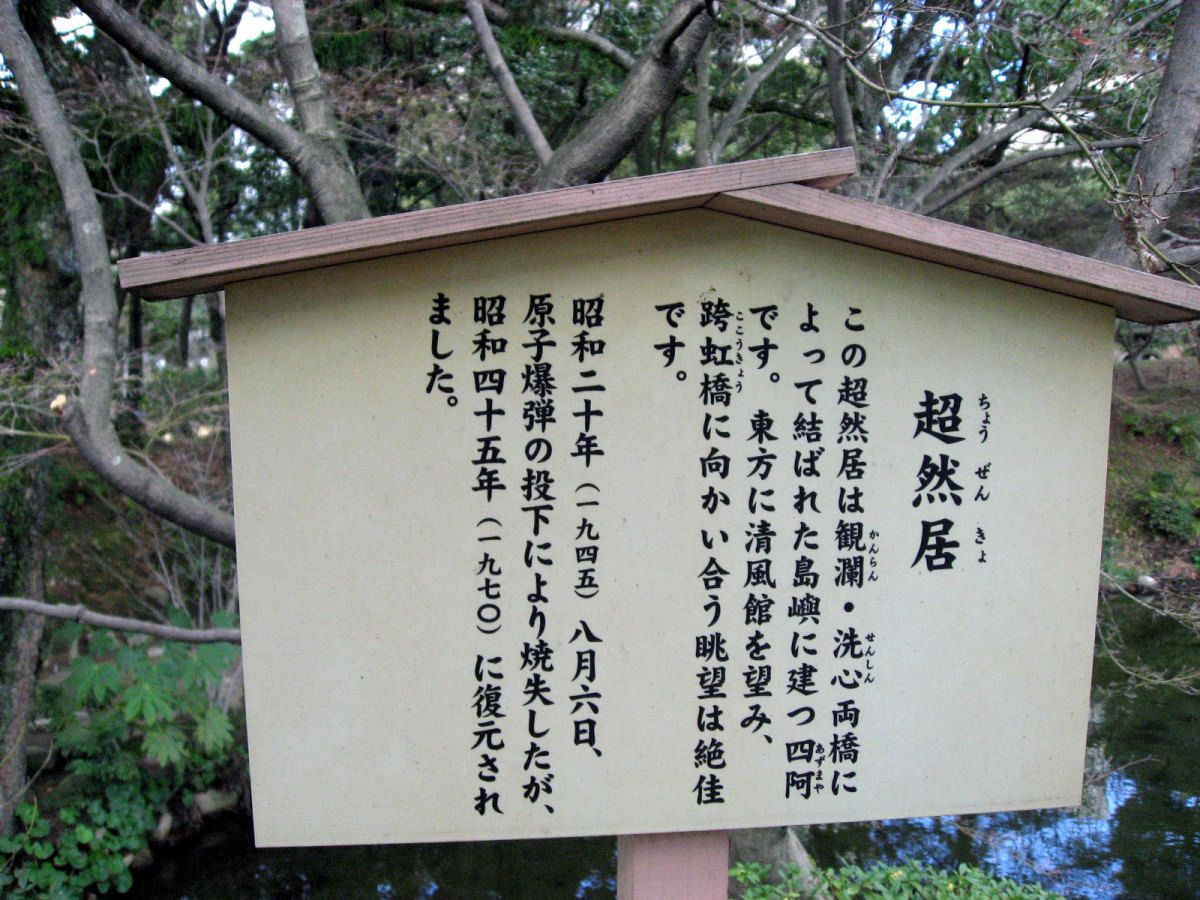 超然居
ちょう ぜん きょ
この超然居は観瀾・洗心両橋に
かんらん せんしん
よって結ばれた島嶼に建つ四阿
あずまや
です。東方に清風館を望み、
跨虹橋に向かい合う眺望は絶佳
ここうきょう
です。
昭和二十年（一九四五）八月六日、
原子爆弾の投下により焼失したが、
昭和四十五年（一九七〇）に復元され
ました。